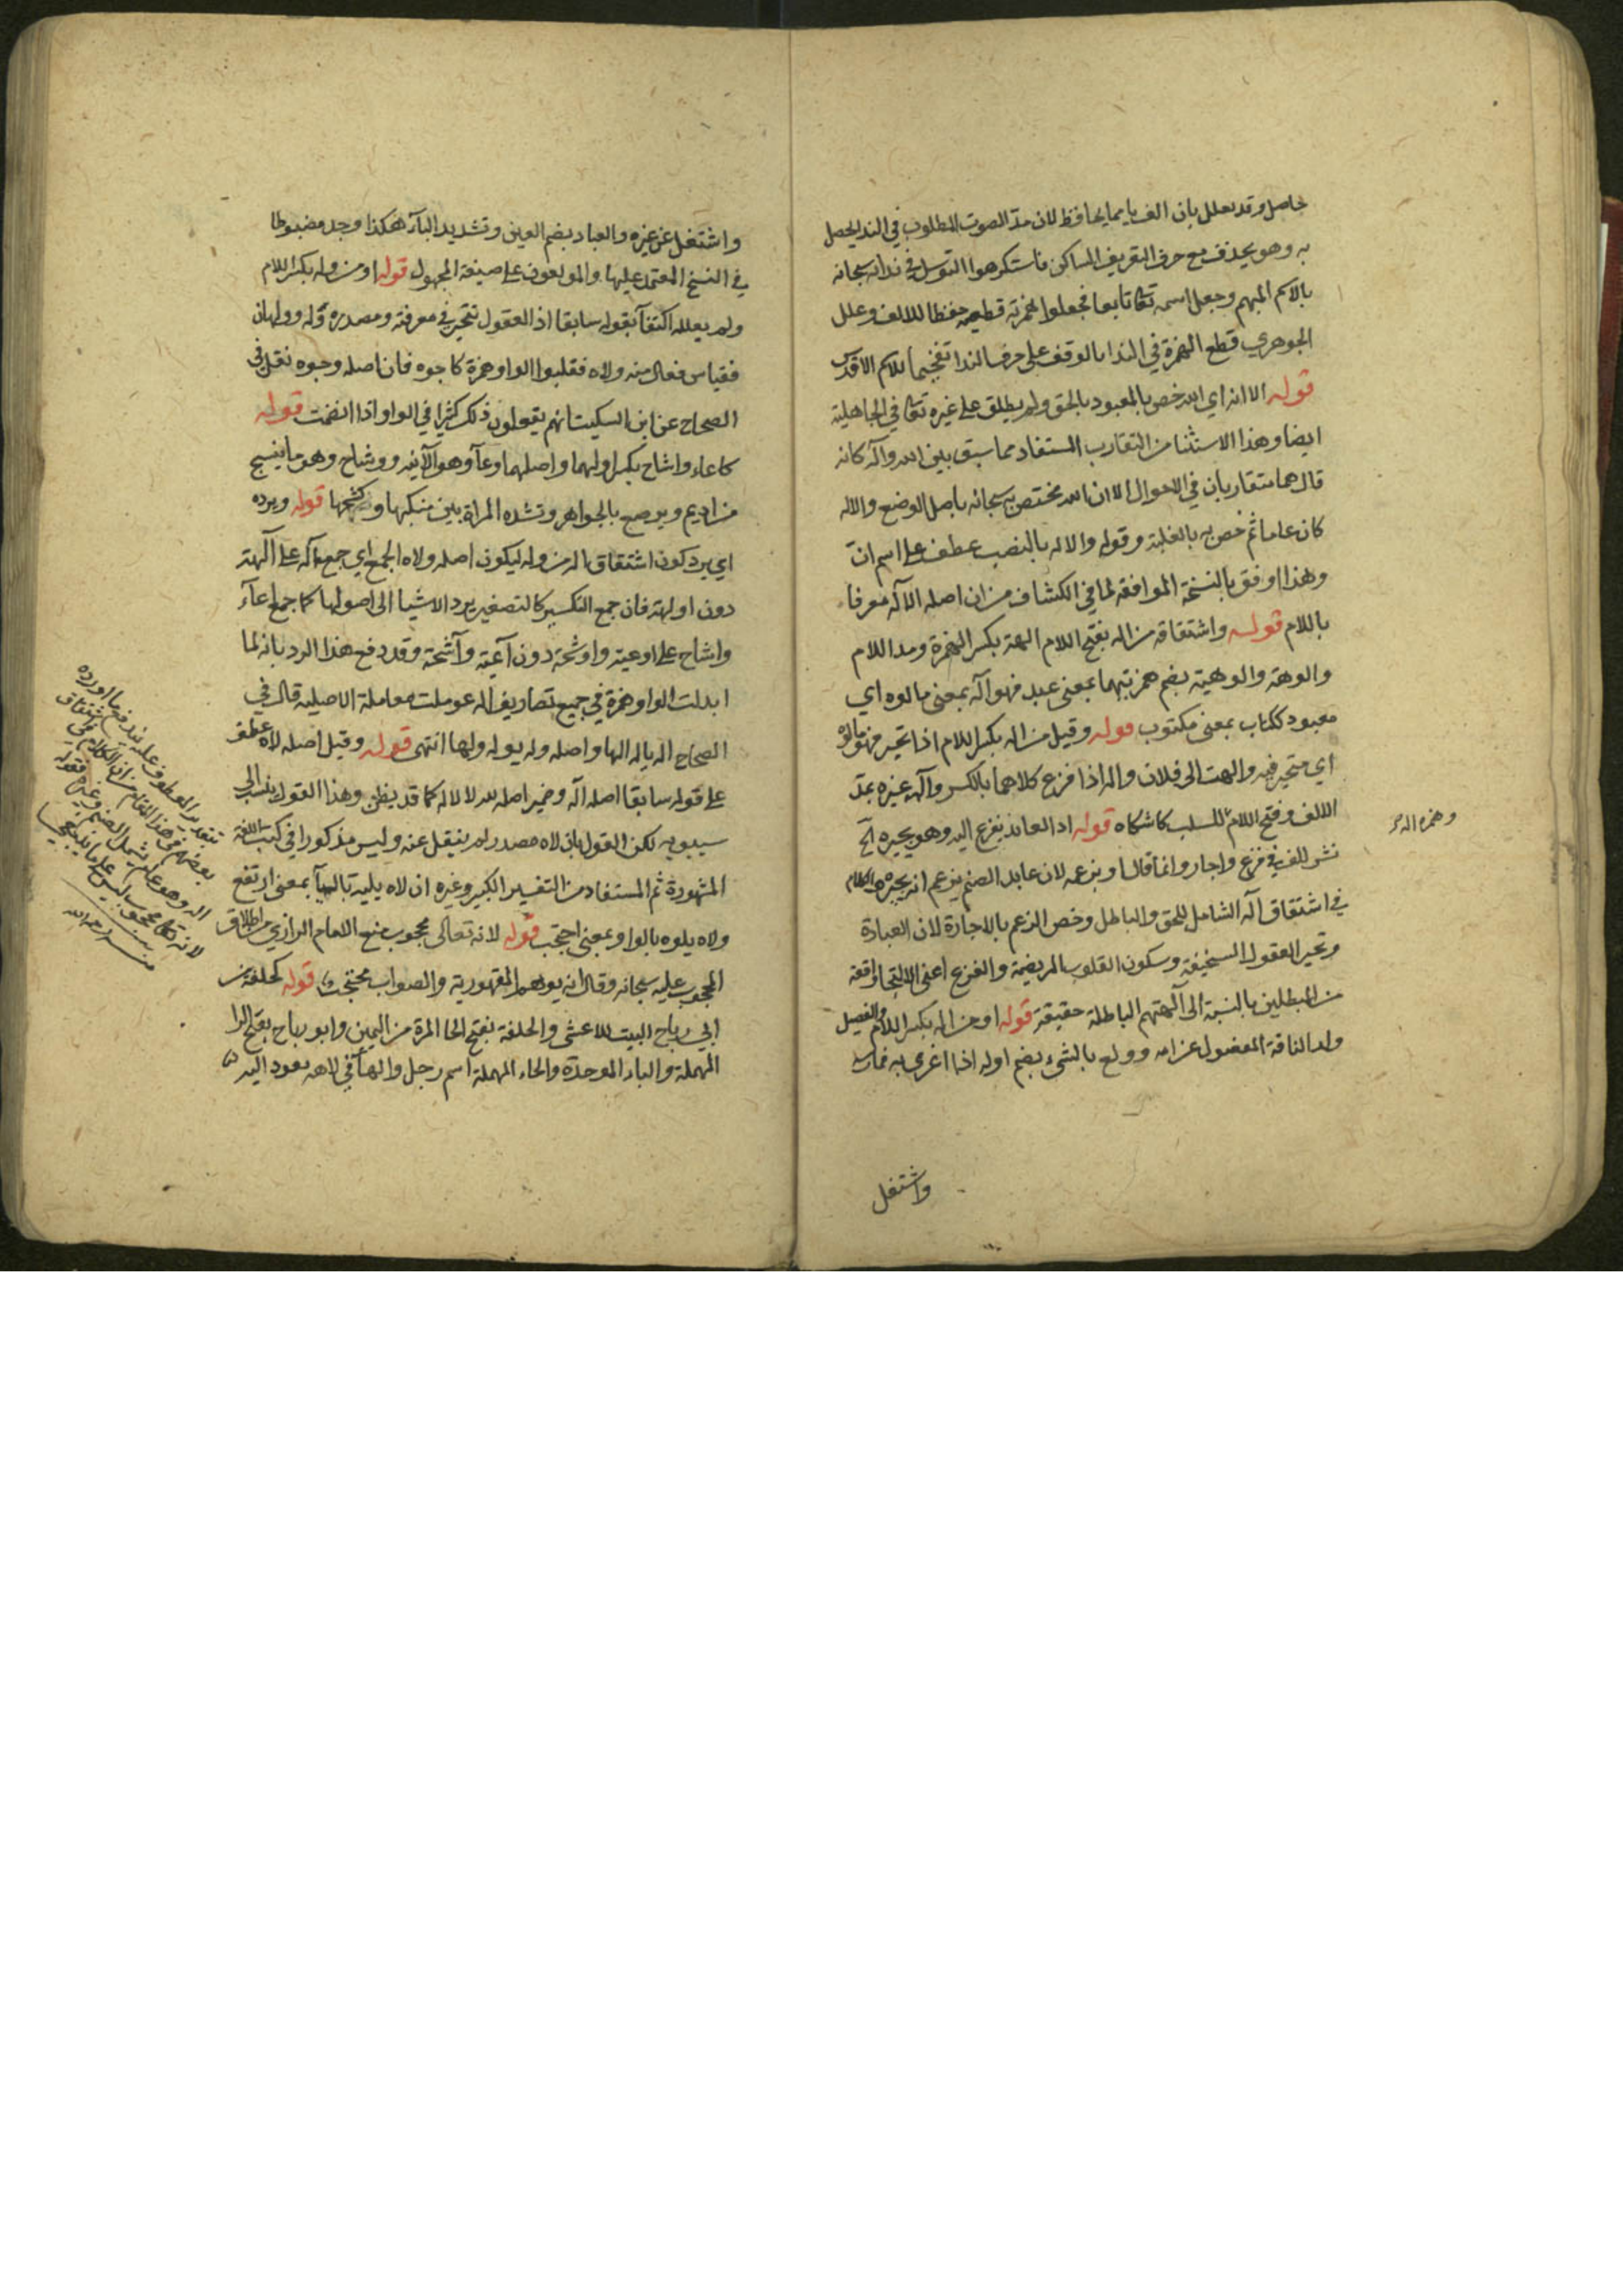 حاصل وقد يعلل بان الف يا مما يحافظ لان مد الصوت المطلوب في الند يحصل
به وهو يحذف مع حرف التعريف الساكن فاستكرهوا التوسل في ندائه سبحانه
بالاسم المبهم وجعل اسمه تعا تابعا فجعلوا الهمزة قطعية حفظا للالف وعلل
الجوهري قطع الهمزة في الندا بالوقف على حرف الندا تفخيما للاسم الاقدس
قوله الا انه اي الله خص بالمعبود بالحق ولم يطلق على غيره تعا في الجاهلية
ايضا وهذا الاستثنا من التقارب المستفاد مما سبق بين الله واله كانه
قال هما متقاربان في الاحوال الا ان الله مختص به سبحانه باصل الوضع والاله
كان عاما ثم خص به بالغلبة وقوله والاله بالنصب عطف على اسم ان
وهذا اوفق بالنسخة الموافقة لما في الكشاف من ان اصله الاله معرفا
باللام قوله واشتقاقه من اله بفتح اللام الهة بكسر الهمزة ومد اللام
والوهة والوهية بضم همزتيهما بمعنى عبد فهو اله بمعنى مالوه اي
معبود ككتاب بمعنى مكتوب قوله وقيل من اله بكسر اللام اذا تحير فهو مالوه
اي متحير فيه والهت الى فلان واله اذا فزع كلاهما بالكسر وآلهه غيره بمد
الالف وفتح اللام للسلب كاشكاه قوله اذ العابد يفزع اليه وهو يجيره الخ
نشر للف في فزع واجار وانما قال او بزعمه لان عابد الصنم يزعم انه يجيره والكلام
في اشتقاق اله الشامل للحق والباطل وخص الزعم بالاجارة لان العبادة
وتحير العقول السخيفة وسكون القلوب المريضة والفزع اعني الالتجا واقعة
من المبطلين بالنسبة الى آلهتهم الباطلة حقيقة قوله او من اله بكسر اللام والفصيل
ولد الناقة المفصول عن امه وولع بالشيء بضم اوله اذا اغري به
وهمزه اله
واشتغل
واشتغل عن غيره والعباد بضم العين وتشديد البآء هكذا وجد مضبوطا
في النسخ المعتمد عليها والمولعون على صيغة المجهول قوله او من وله بكسر اللام
ولم يعلله اكتفآ بقوله سابقا اذ العقول تتحير في معرفته ومصدره وله وولهان
فقياس فعال منه ولاه فقلبوا الواو همزة كاجوه فان اصله وجوه نقل في
الصحاح عن ابن السكيت انهم يفعلون ذلك كثيرا في الواو اذا انضمت قوله
كاعاء واشاح بكسر اولهما واصلهما وعآ وهو الآنية ووشاح وهو ما ينسج
من اديم ويرصع بالجواهر وتشده المراة بين منكبها وكشحها قوله ويرده
اي يرد كون اشتقاق اله من وله ليكون اصله ولاه الجمع اي جمع اله على آلهة
دون اولهة فان جمع التكسير كالتصغير يرد الاشيا الى اصولها كما جمع اعآء
واشاح على اوعية واوشحة دون آعية وآشحة وقد دفع هذا الرد بانه لما
ابدلت الواو همزة في جميع تصاريف اله عوملت معاملة الاصلية قال في
الصحاح اله ياله الها واصله وله يوله ولها انتهى قوله وقيل اصله لاه عطف
على قوله سابقا اصله اله وضمير اصله لله لا لاله كما قد يظن وهذا القول ينسب الى
سيبويه لكن القول بان لاه مصدر لم ينقل عنه وليس مذكورا في كتب اللغة
المشهورة ثم المستفاد من التفسير الكبير وغيره ان لاه يليه باليآ بمعنى ارتفع
ولاه يلوه بالواو بمعنى احتجب قوله لانه تعالى محجوب منع الامام الرازي من اطلاق
المحجوب عليه سبحانه وقال انه يوهم المقهورية والصواب محتجب قوله كحلفة من
ابي رباح البيت للاعشى والحلفة بفتح الحا المرة من اليمين وابو رباح بفتح الرا
المهملة والباء الموحدة والحاء المهملة اسم رجل والهآ في لاهه يعود اليه
بتقدير المعطوف عليه يندفع ما اورده
بعضهم في هذا المقام من ان الكلام في اشتقاق
اله وهو عام يشمل الصنم وغيره فقوله
لانه تعالى محجوب ليس على ما ينبغي
منه رحمه الله